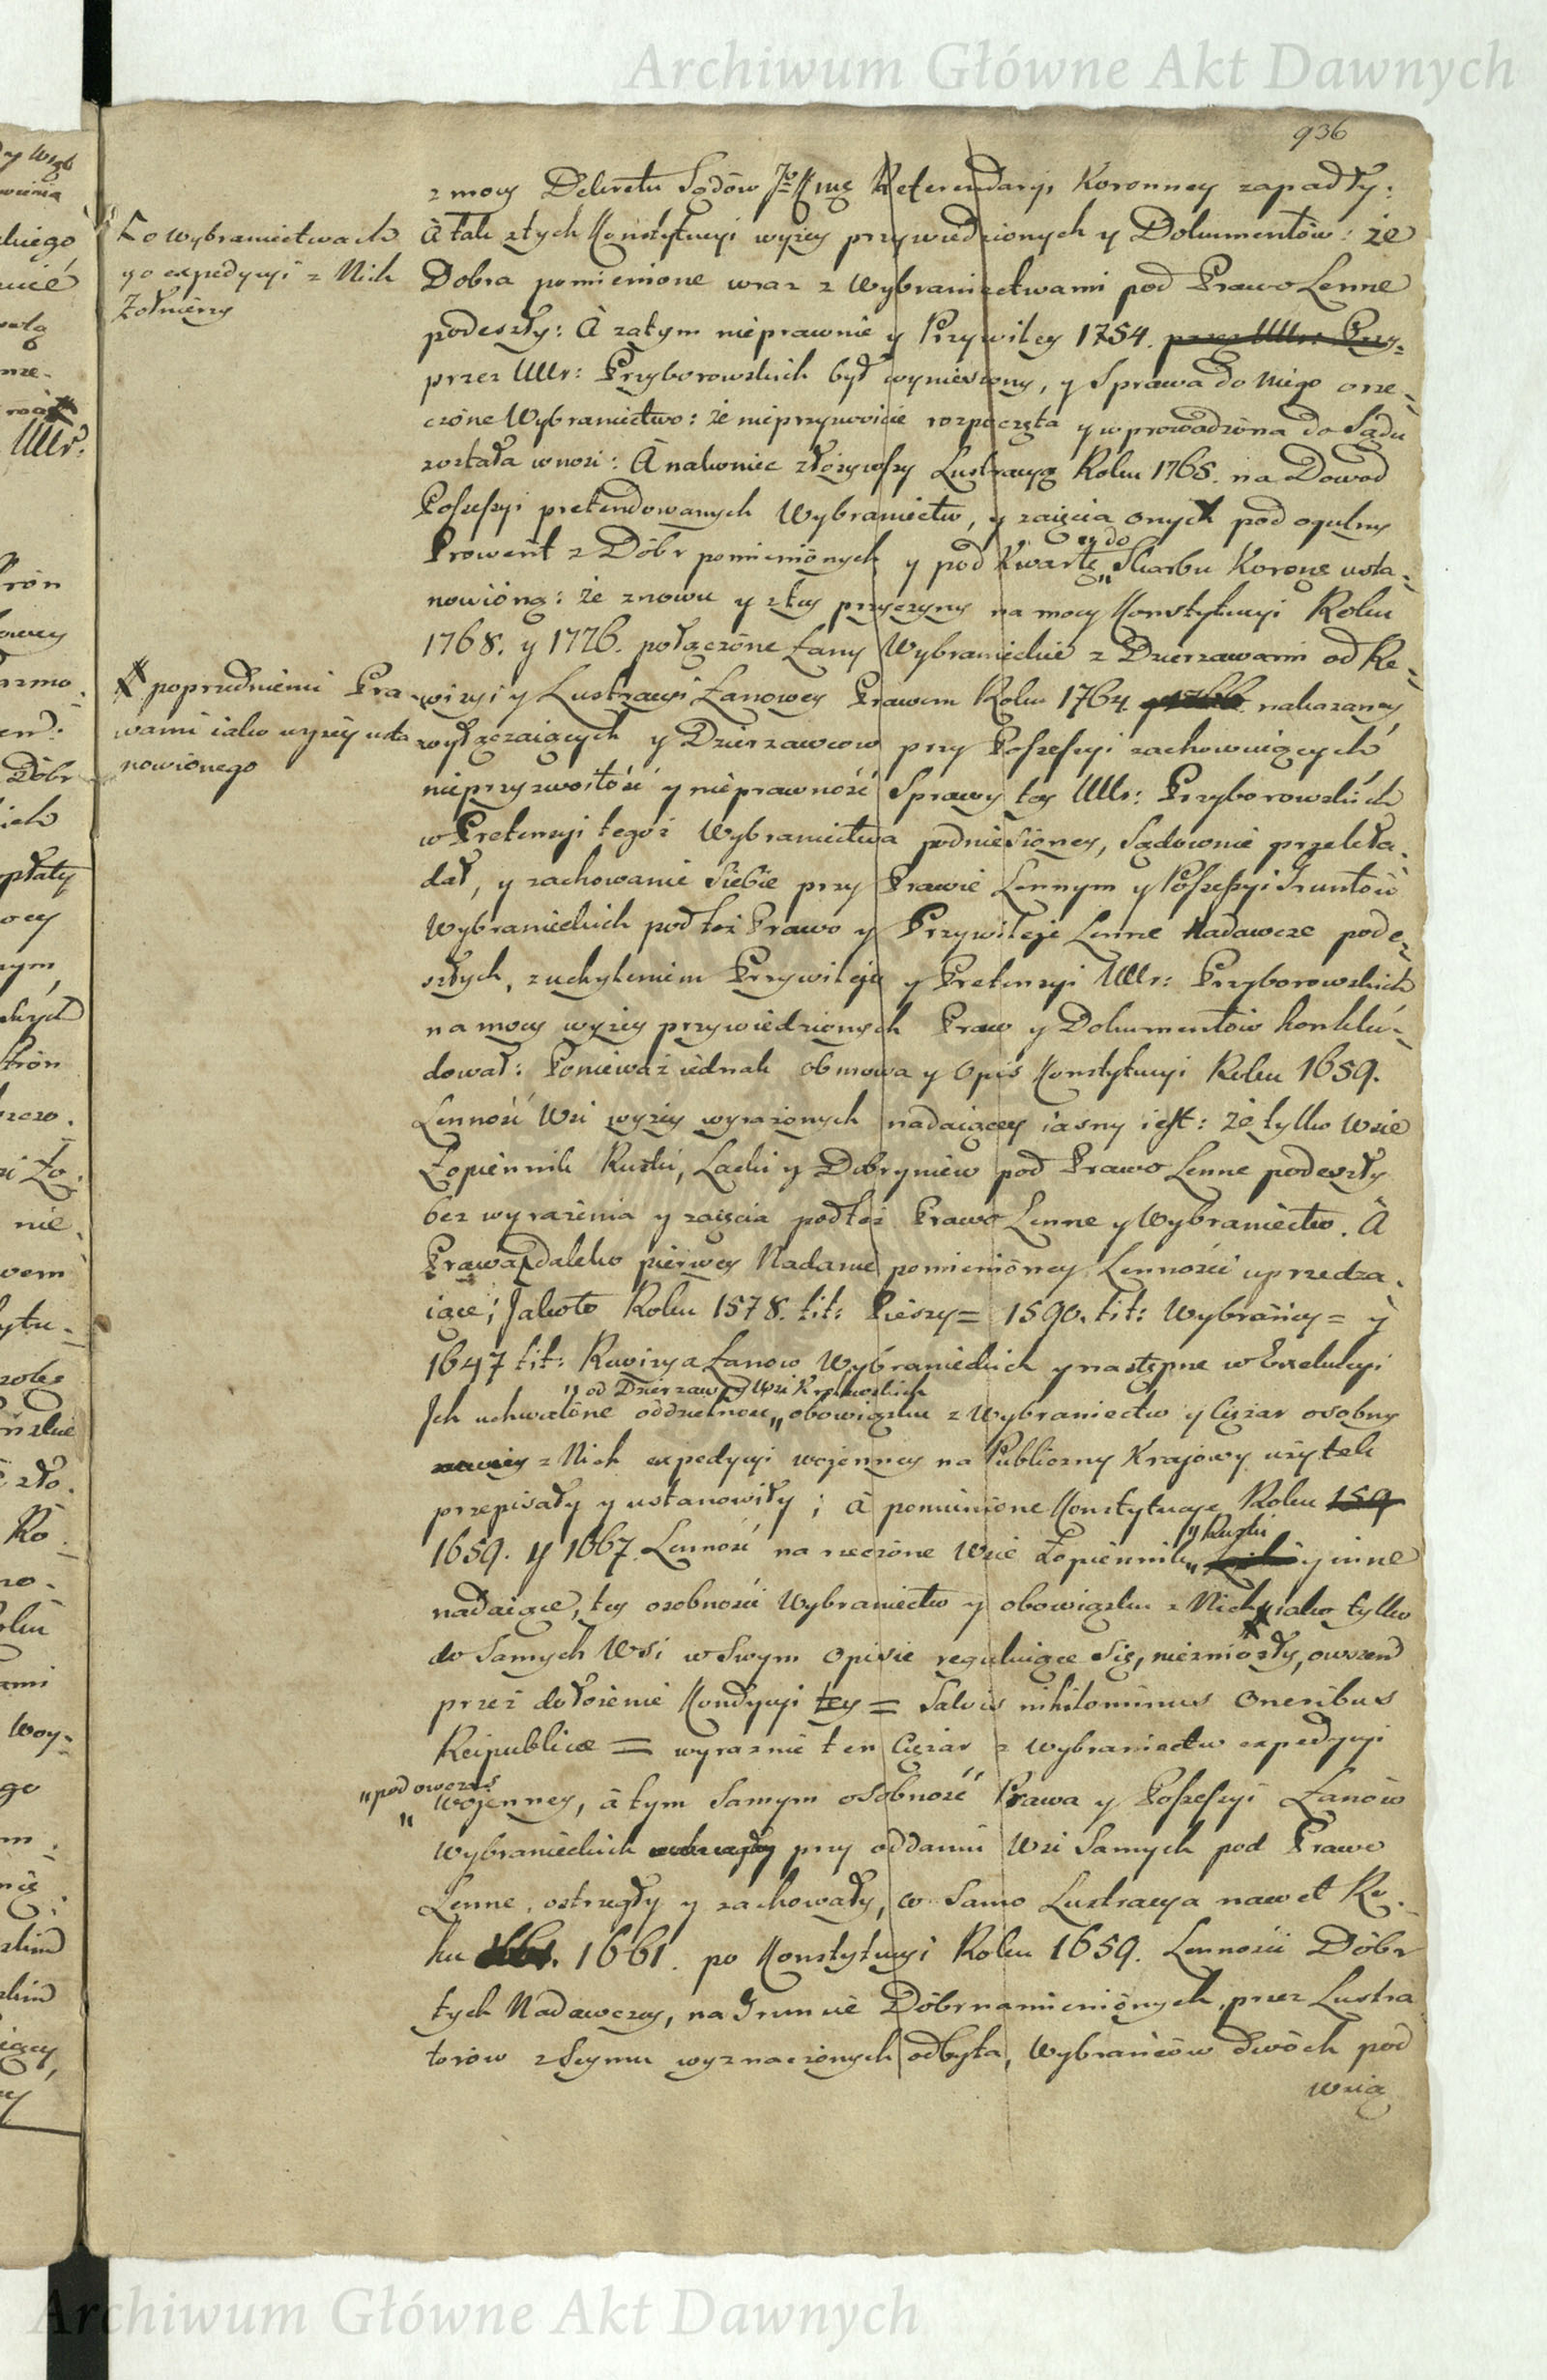 Archiwum Główne Akt Dawnych
936
z mocy Dekretu Sądów Referendaryi Koronney zapadły:
A tak z tych Konstytucyi wyżey przywiedzionych y Dokumentów: że
Dobra pomienione wraz z Wybraniectwami pod Prawo Lenne
podeszły: A zatym nieprawnie y Przywiley 1754. przez Ullr: Przy=
przez Ullr: Przyborowskich był wyniesiony, y Sprawa do Niego o rze=
czone Wybraniectwo: że nieprzyzwoicie rozpoczęta y wprowadzona do Sądu
została wnosi: A nakoniec złożywszy Lustracyą Roku 1765. na Dowod
Possessyi pretendowanych Wybraniectw, y zaięcia onych pod ogulny
Prowent z Dóbr pomienionych y pod Kwartę „y do Skarbu Korong usta=
nowioną: że znowu y z tey przyczyny na mocy Konstytucyi Roku
1768. y 1776. połączone Łany Wybranieckie z Dzierzawami od Re=
wizyi y Lustracyi Łanowey Prawem Roku 1764. nakazaney
wyłączaiących y Dzierzawcow przy Possessyi zachowuiących
nieprzyzwoitość y nieprawność Sprawy tey Ullr: Przyborowskich
w Pretensyi tegoż Wybraniectwa podniesioney, Sądownie przekła=
dał, y zachowanie Siebie przy Prawie Lennym y Possessyi Gruntów
Wybranieckich pod toż Prawo y Przywileje Lenne Nadawcze pode=
szłych, z uchyleniem Przywileju y Pretensyi Ullr: Przyborowskich
na mocy wyżey przywiedzionych Praw y Dokumentów konklu=
dował: Ponieważ iednak obmowa y Opis Konstytucyi Roku 1659.
Lenność Wsi wyżey wyrażonych nadaiącey iasny iest: że tylko Wsie
Łopiennik Ruski, Lacki y Dobryniew pod Prawo Lenne podeszły
bez wyrażenia y zaięcia pod toż Prawo Lenne y Wybraniectw. A
Prawa daleko pierwey Nadanie pomienioney Lenności uprzedza=
iące; Jakoto Roku 1578. tit: Pieszy= 1590. tit: Wybrańcy= y
1647 tit: Rewizya Łanow Wybranieckich y następne w Exekucyi
„od Dzierzaw y Wsi Krolewskich
Jch uchwalone oddzielnou „obowiązku z Wybraniectw y Ciężar osobny
z Nich expedycyi wojenney na Publiczny Krajowy użytek
przepisały y ustanowiły; á pomienione Konstytucye Roku 159
1659. y 1667. Lenność na rzeczone Wsie Łopiennik „y Ruski y inne
nadaiące, tey osobności Wybraniectw y obowiązku z Nich, iako tylko
do Samych Wsi w Swym Opisie reguluiące Się, niezniosły, owszem
przez dołożenie Kondycyi tey = Salvis nihilominus Oneribus
Reipublicæ = wyraznie ten Ciężar z Wybraniectw expedycyi
„podowczas
wojenney, á tym Samym osobność Prawa y Possessyi Łanów
Wybranieckich przy oddaniu Wsi Samych pod Prawo
Lenne, ostrzegły y zachowały, co Samo Lustracya nawet Ro=
ku 1661. po Konstytucyi Roku 1659. Lenności Dóbr
tych Nadawczey, na Gruncie Dóbr namienionych, przez Lustra
torów z Seymu wyznaczonych odbyta, Wybrańców dwóch pod
wsią
Ł o wybraniectwach
y o expedycyi z Nich
Żołnierzy
poprzedniemi Pra
wami iako wyżey usta
nowionego
Archiwum Główne Akt Dawnych